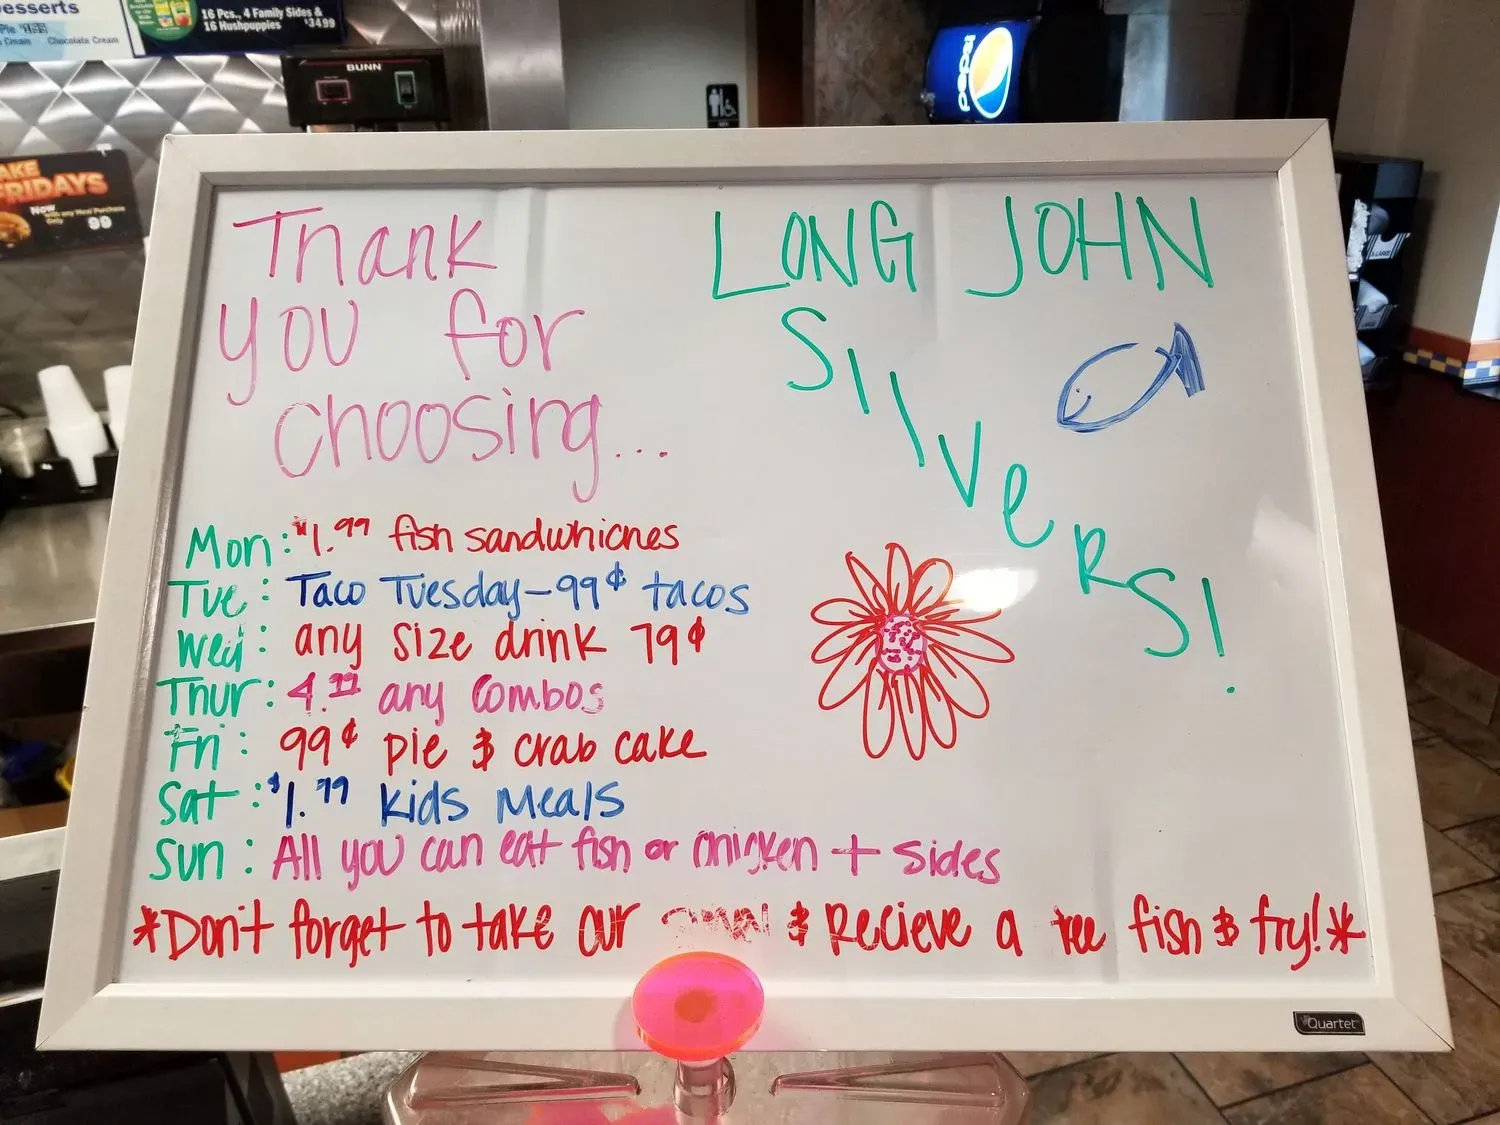 esserts
Pie
s Cream Chocolate Cream
16 Pcs., 4 Family Sides &
16 Hushpuppies $34.99
BUNN
pepsi
AKE
FRIDAYS
Now with any Meal Purchase
Only 99
Thank
you for
choosing...
LONG JOHN
SilveRS!
Mon: $1.99 fish sandwhicnes
Tue: Taco Tuesday-99¢ tacos
Wed: any size drink 79¢
Thur: 4.99 any combos
Fri: 99¢ pie & crab cake
Sat: $1.99 kids meals
Sun: All you can eat fish or chicken + sides
*Don't forget to take our & Recieve a free fish & fry!*
Quartet